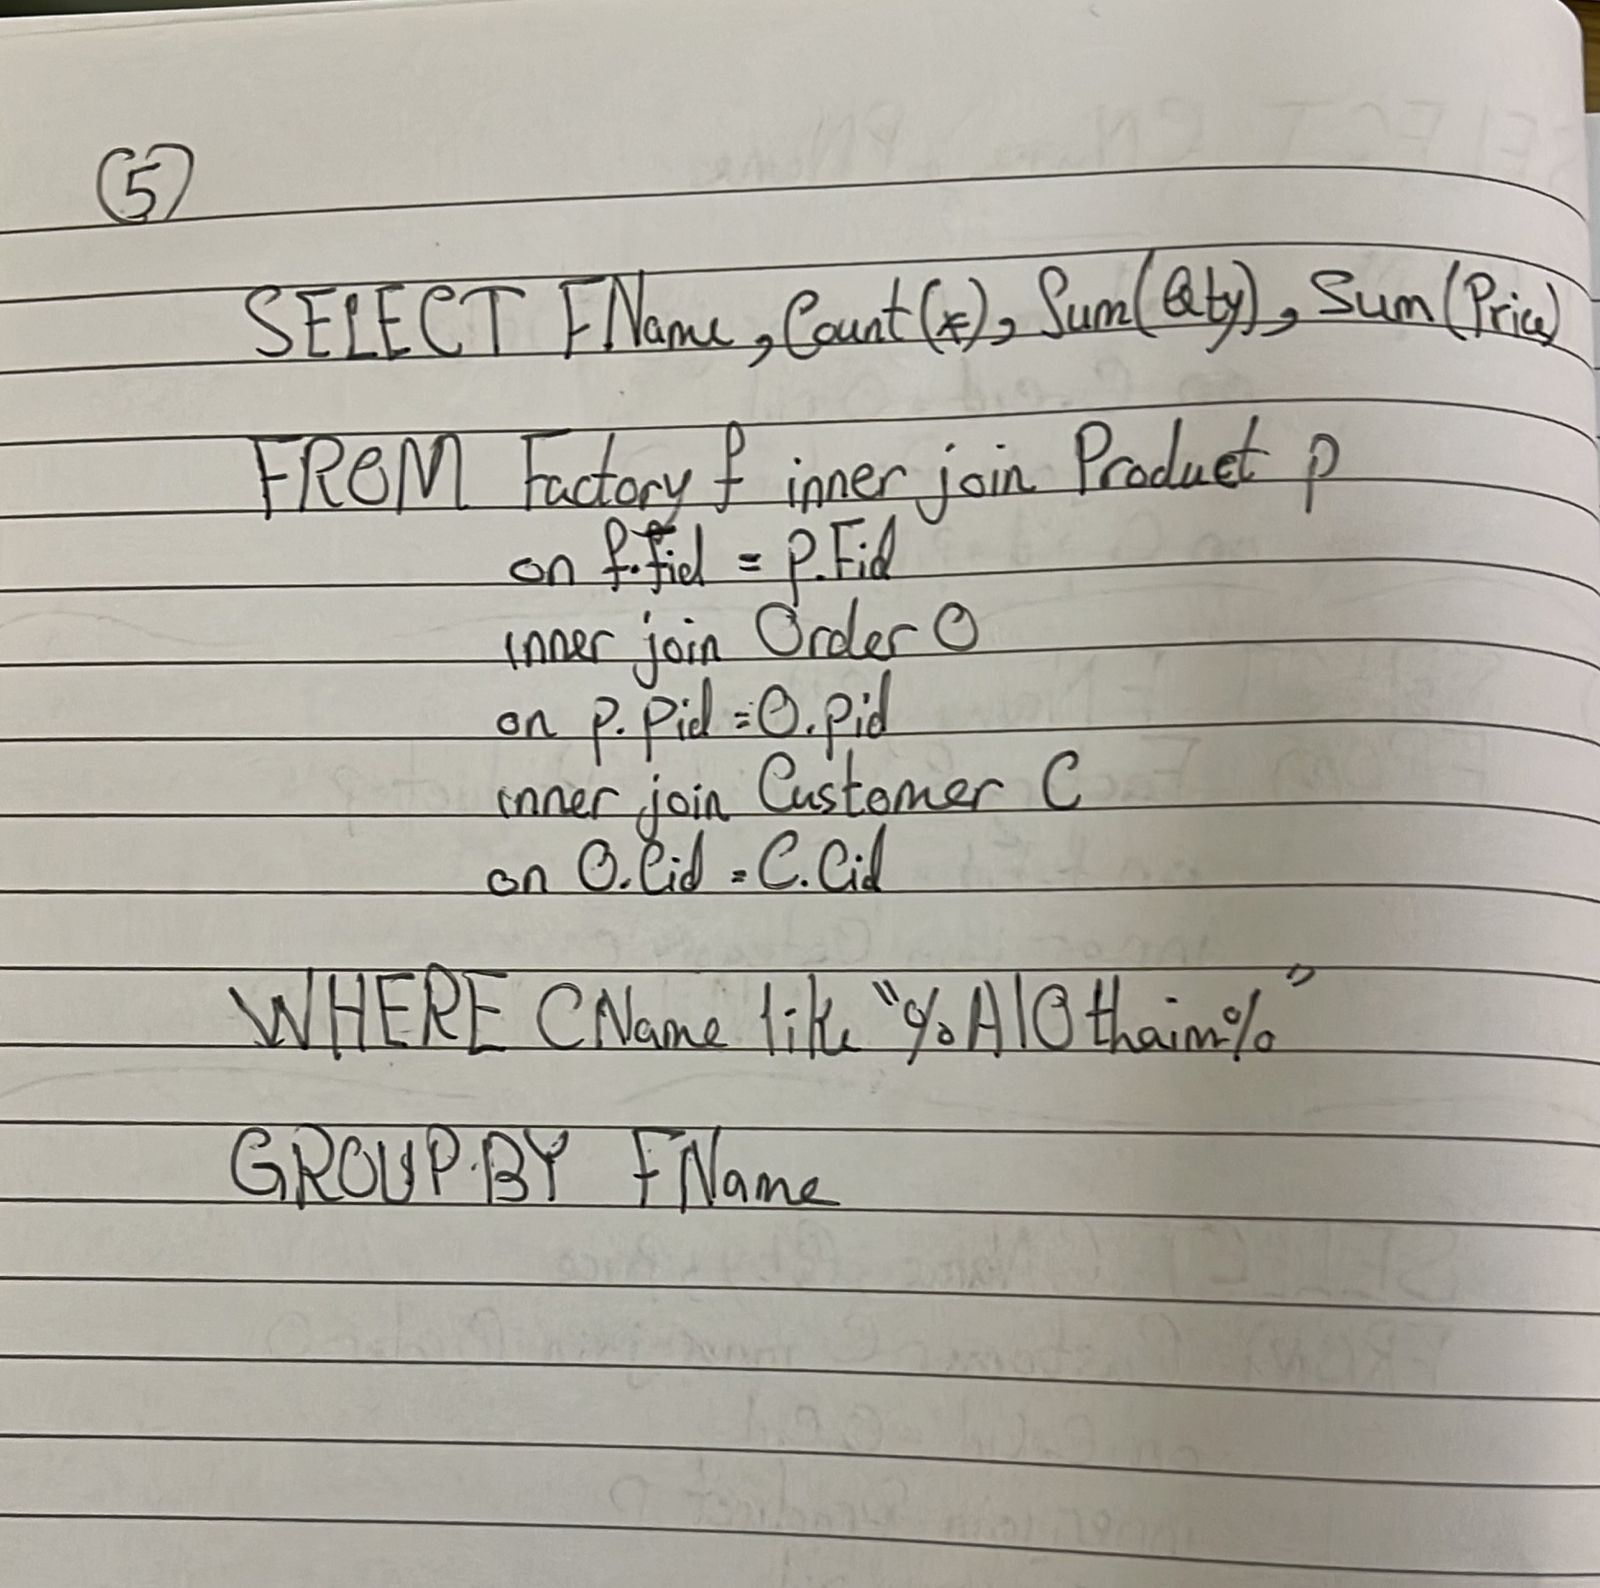 (5)
SELECT FName, Count(*), Sum(Qty), Sum(Price)
FROM Factory f inner join Product p
on f.fid = p.Fid
inner join Order O
on p.pid = O.pid
inner join Customer C
on O.Cid = C.Cid
WHERE CName like "%AlOthaim%"
GROUP BY FName